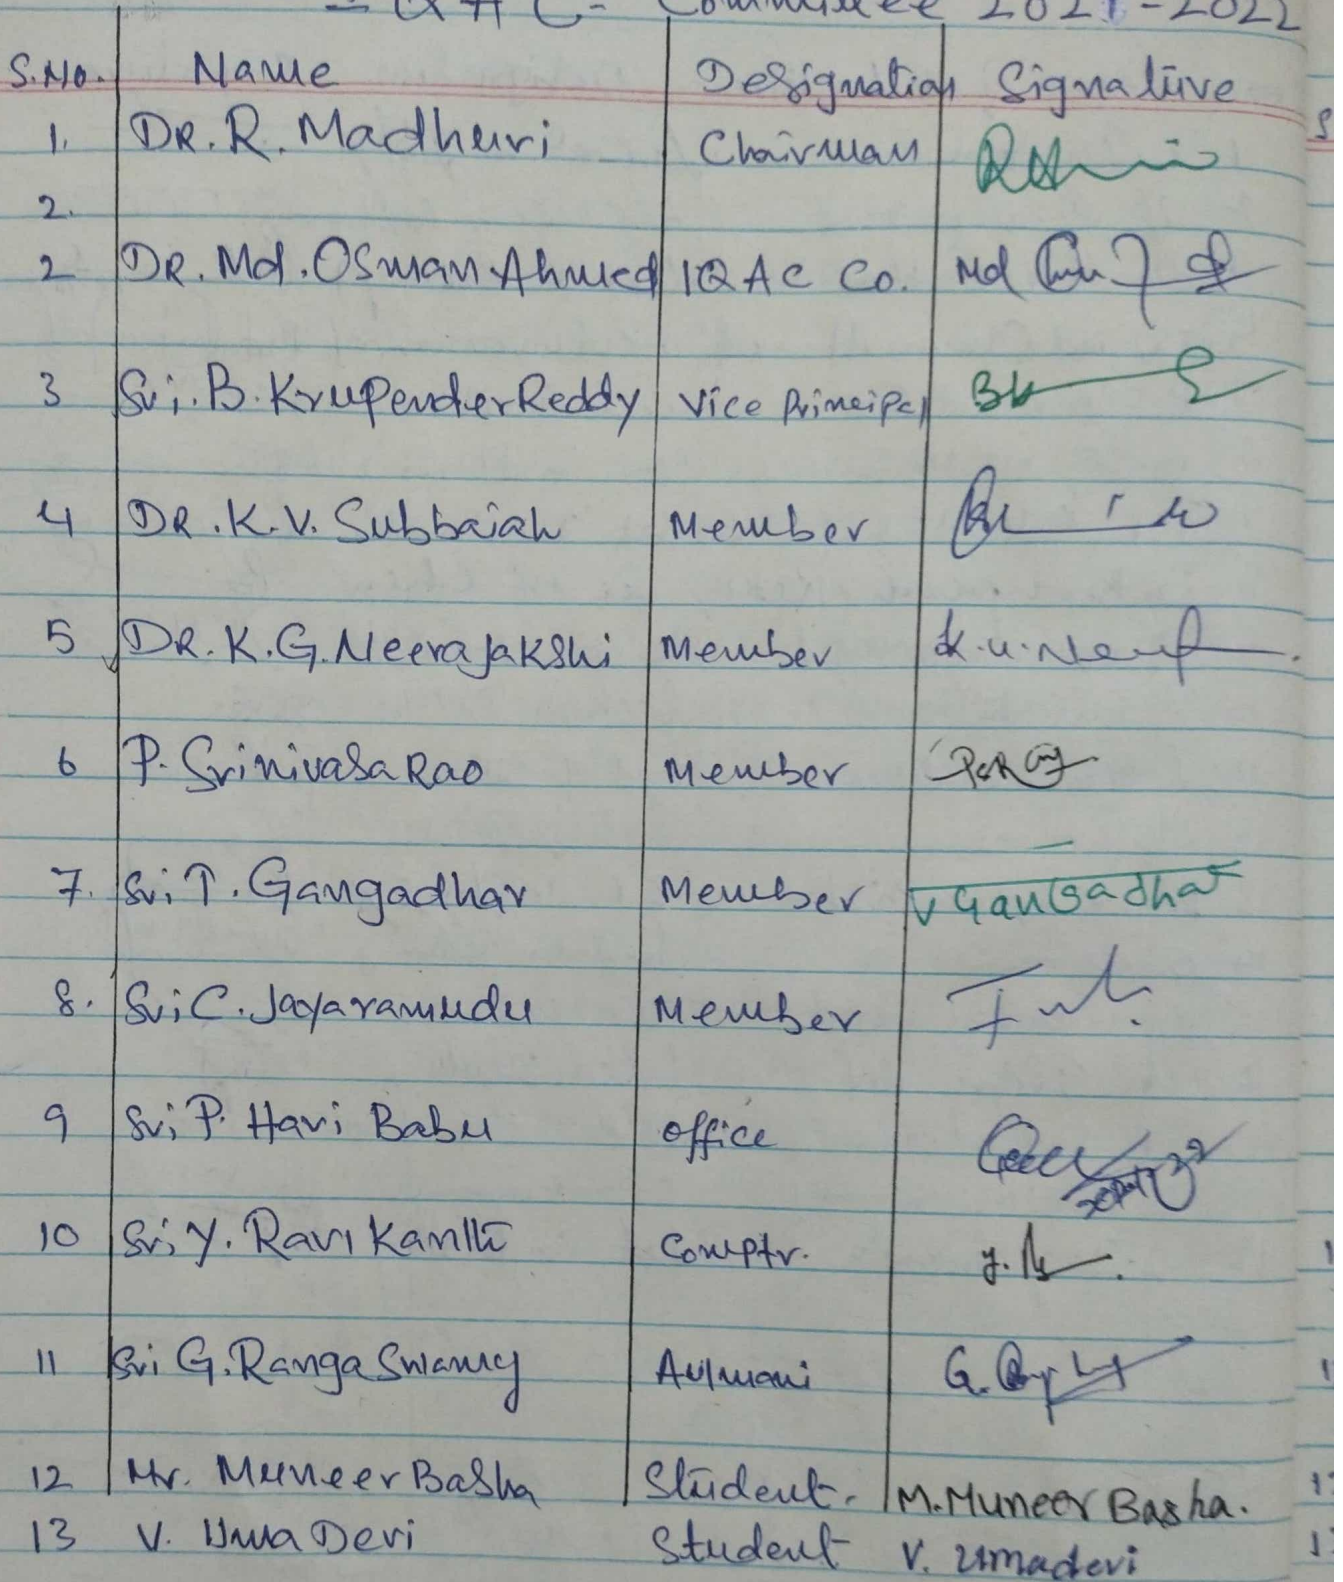 IQAC- Committee 2021-2022
S.No. Name Designation Signature
1. DR. R. Madhuri Chairman
2.
2 DR. Md. Osman Ahmed IQAC Co. Md
3 Sri. B. Krupender Reddy Vice Principal
4 DR. K.V. Subbaiah Member
5 DR. K.G. Neerajakshi Member
6 P. Srinivasa Rao Member
7. Sri T. Gangadhar Member Gangadhar
8. Sri C. Jayaramudu Member
9 Sri P. Hari Babu office
10 Sri Y. Ravi Kanth Comptr.
11 Sri G. Ranga Swamy Aulmani G.
12 Mr. Muneer Basha Student. M. Muneer Basha.
13 V. Uma Devi Student V. Umadevi